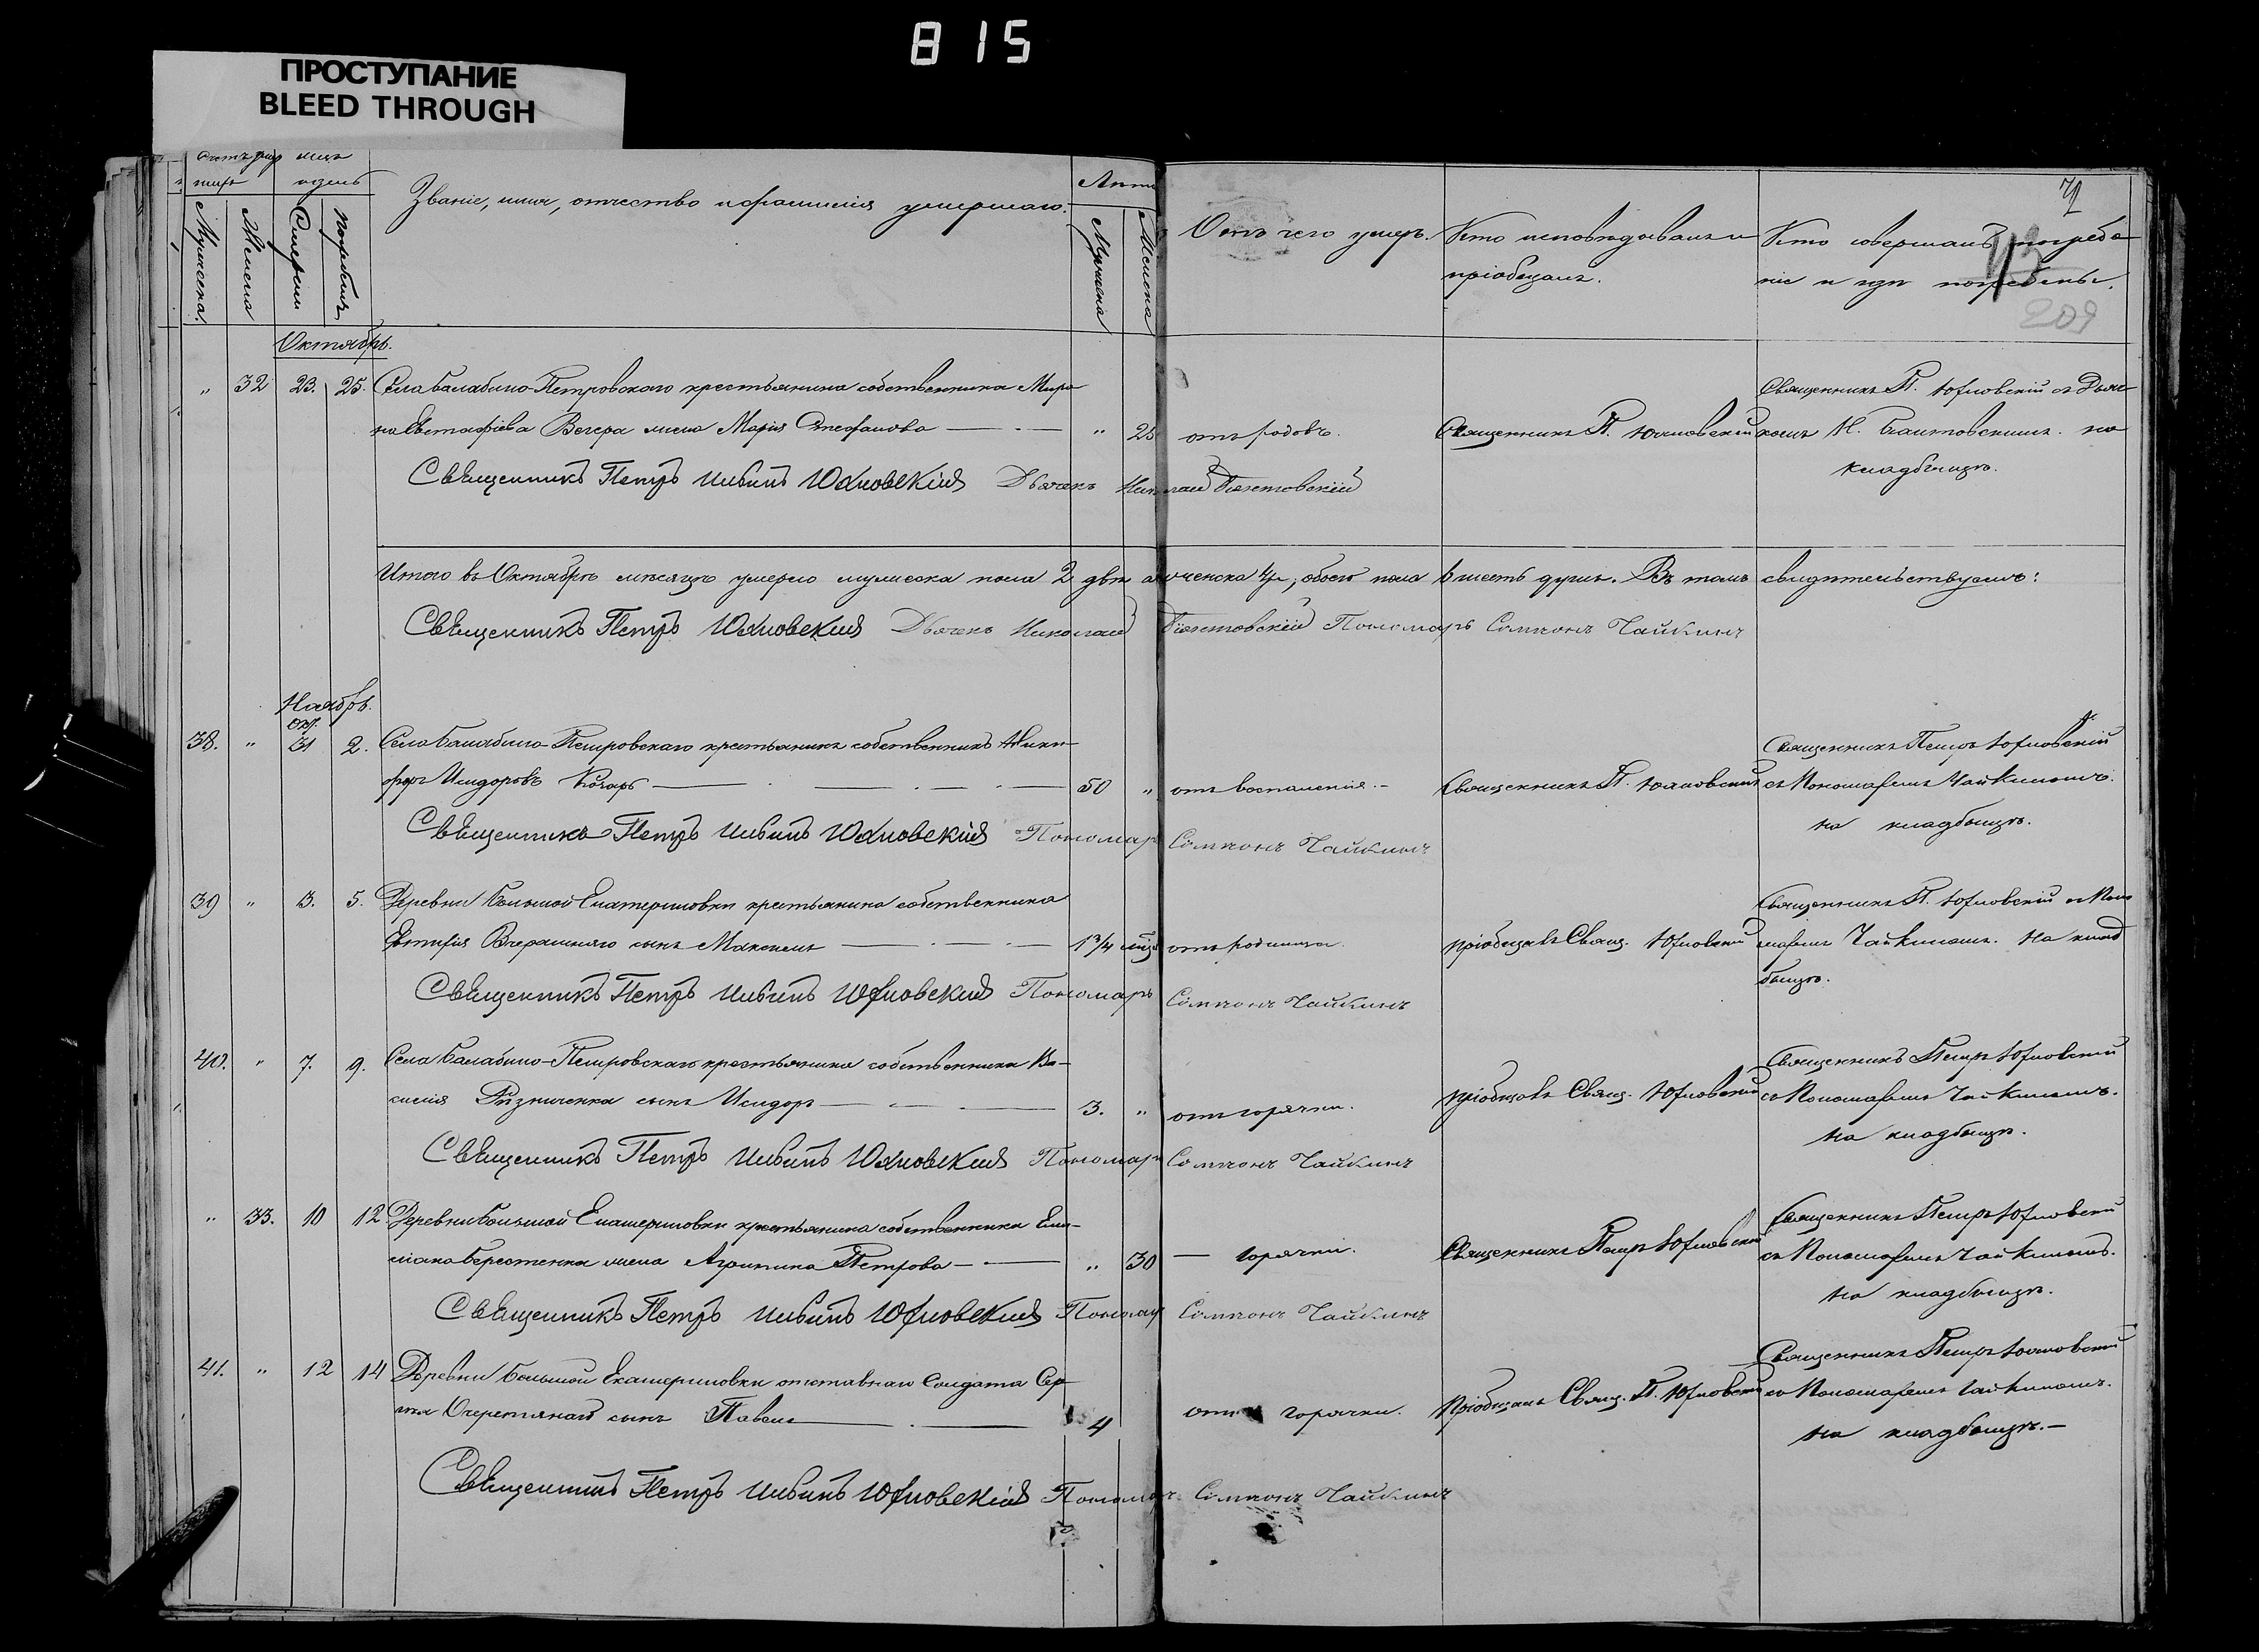 815
ПРОСТУПАНИЕ
BLEED THROUGH
Счетъ умер
шихъ
Мѣсяцъ
и день
Мужеска.
Женска
Смерти
Погребенія
Званіе, имя, отчество и фамилія умершаго.
Лѣта
Мужеска
Женска
Отъ чего умеръ.
Кто исповѣдывалъ и
пріобщалъ.
Кто совершалъ погребе
ніе и гдѣ погребены.
72
209
Октябрь.
" 32 23. 25. Села Балабино-Петровскаго крестьянина собственника Миро
на Евстафіева Вечера жена Марія Стефанова " 25 отъ родовъ. Священникъ П. Юхновскій
Священникъ П. Юхновскій съ Дьяч
комъ Н. Біантовскимъ. на
кладбищѣ.
Священникъ Петръ Юхновскій Дьячекъ Николай Біянтовскій
Итого въ Октябрѣ мѣсяцѣ умерло мужеска пола 2 два а женска 4, обоего пола 6 шесть душъ. Въ томъ свидѣтельствуемъ:
Священникъ Петръ Юхновскій Дьячекъ Николай Біянтовскій Пономарь Сампонъ Чайкинъ
Ноябрь.
Окт.
38. " 31 2. Села Балабино-Петровскаго крестьянинъ собственникъ Ники
форъ Исидоровъ Кочаръ 50 " отъ воспаленія. Священникъ П. Юхновскій
Священникъ Петръ Юхновскій
съ Пономаремъ Чайкинымъ.
на кладбищѣ.
Священникъ Петръ Юхновскій Пономарь Сампонъ Чайкинъ
39 " 3. 5. Деревни Большой Екатериновки крестьянина собственника
Евтифія Вчерашняго сынъ Максимъ 1 3/4 мѣс. отъ родимца. пріобщалъ Свящ. Юхновскій
Священникъ П. Юхновскій съ Поно
маремъ Чайкинымъ. На клад
бищѣ.
Священникъ Петръ Юхновскій Пономарь Сампонъ Чайкинъ
40. " 7. 9. Села Балабино-Петровскаго крестьянина собственника Ва-
силія Ризниченка сынъ Исидоръ 3. " отъ горячки. пріобщалъ Свящ. Юхновскій
Священникъ Петръ Юхновскій
съ Пономаремъ Чайкинымъ.
на кладбищѣ.
Священникъ Петръ Юхновскій Пономарь Сампонъ Чайкинъ
" 33. 10 12 Деревни Большой Екатериновки крестьянина собственника Еми-
ліана Берестенка жена Агрипина Петрова " 30 — горячки. Священникъ Петръ Юхновскій
Священникъ Петръ Юхновскій
съ Пономаремъ Чайкинымъ.
на кладбищѣ.
Священникъ Петръ Юхновскій Пономарь Сампонъ Чайкинъ
41. " 12 14 Деревни Большой Екатериновки отставнаго Солдата Сер
гія Очеретянаго сынъ Павелъ 4 отъ горячки. Пріобщалъ Свящ. П. Юхновскій
Священникъ Петръ Юхновскій
съ Пономаремъ Чайкинымъ.
на кладбищѣ.
Священникъ Петръ Юхновскій Пономарь Сампонъ Чайкинъ